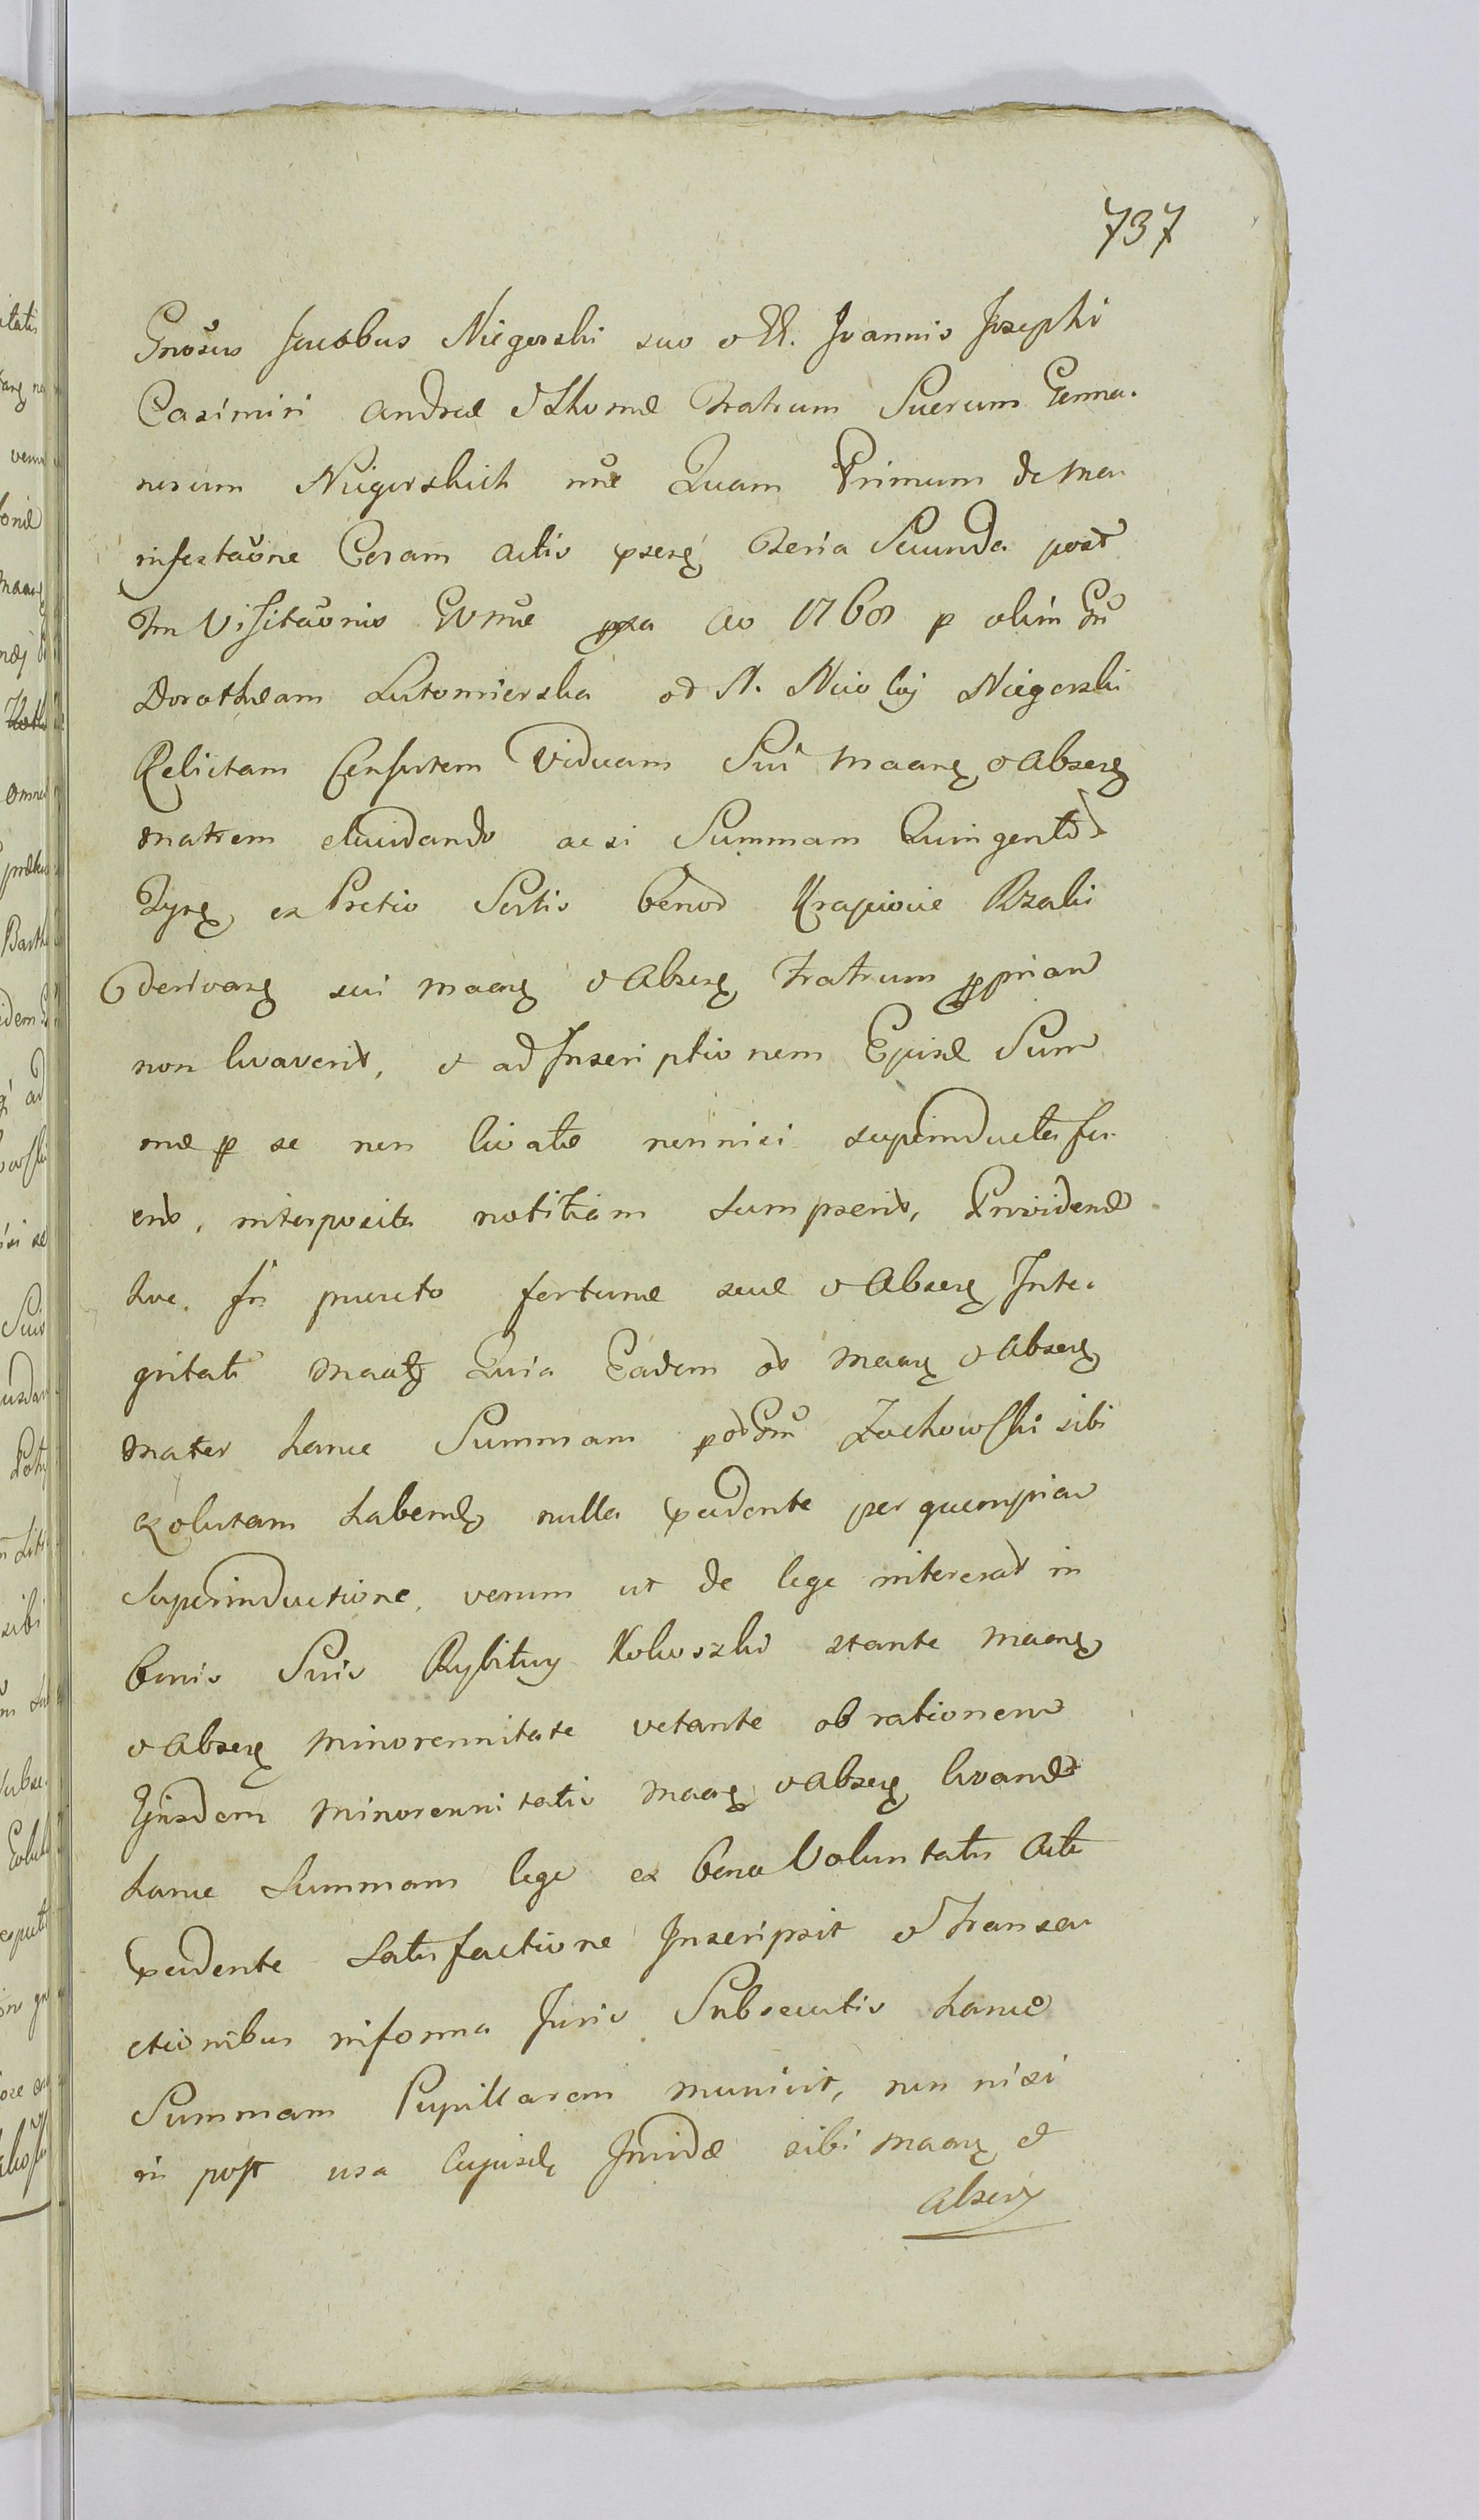 737
Gnosus Jacobus Niegorski suo et N. Joannis Josephi
Casimiri Andreæ et Thomæ Fratrum Suorum Germa-
norum Niegorskich nne Quam Primum de Ma-
nifestaone Coram actis pserq Feria Secunda post
Ftm Visitaonis Ao 1768 p olim Gn
Dorotheam Lutomierska od N. Niegorski
Relictam Consortem Viduam Sui Maang et Abserq
Matrem elucidando ac si Summam Quingentor
ex Pretio Sortis Bonor Krapiow Rzabi
derivang sui Maang et Abserq Fratrum pprian
non levaverit, et ad Inscriptionem Sum
mæ p se non levatæ non nisi superinducta fu
erit, interposita notitiam sumpserit, Providend
hoc in puncto fortunæ suæ et Abserq Inte-
gritati Maatq Quia Eadem et Maang et Abserq
Mater hanc Summam p od Gm Zochowski sibi
exolutam habend nulla pcedente per quempian
Superinductione, verum ut de lege intererat in
bonis Suis Rybitwy Kokoszki stante Maang
et Abserq minorennitate vetante ob rationem
Ejusdem minorennitatis Maang et Abserq levand
hanc Summam lege ex bona Voluntatis Acti
pcedente Satisfactione Inscripsit et Transa-
ctionibus in forma Juris Subsecutis hanc
Summam Pupillarem munivit, non nisi
in post usa cujusdq Invidæ sibi Maang et
Abserq